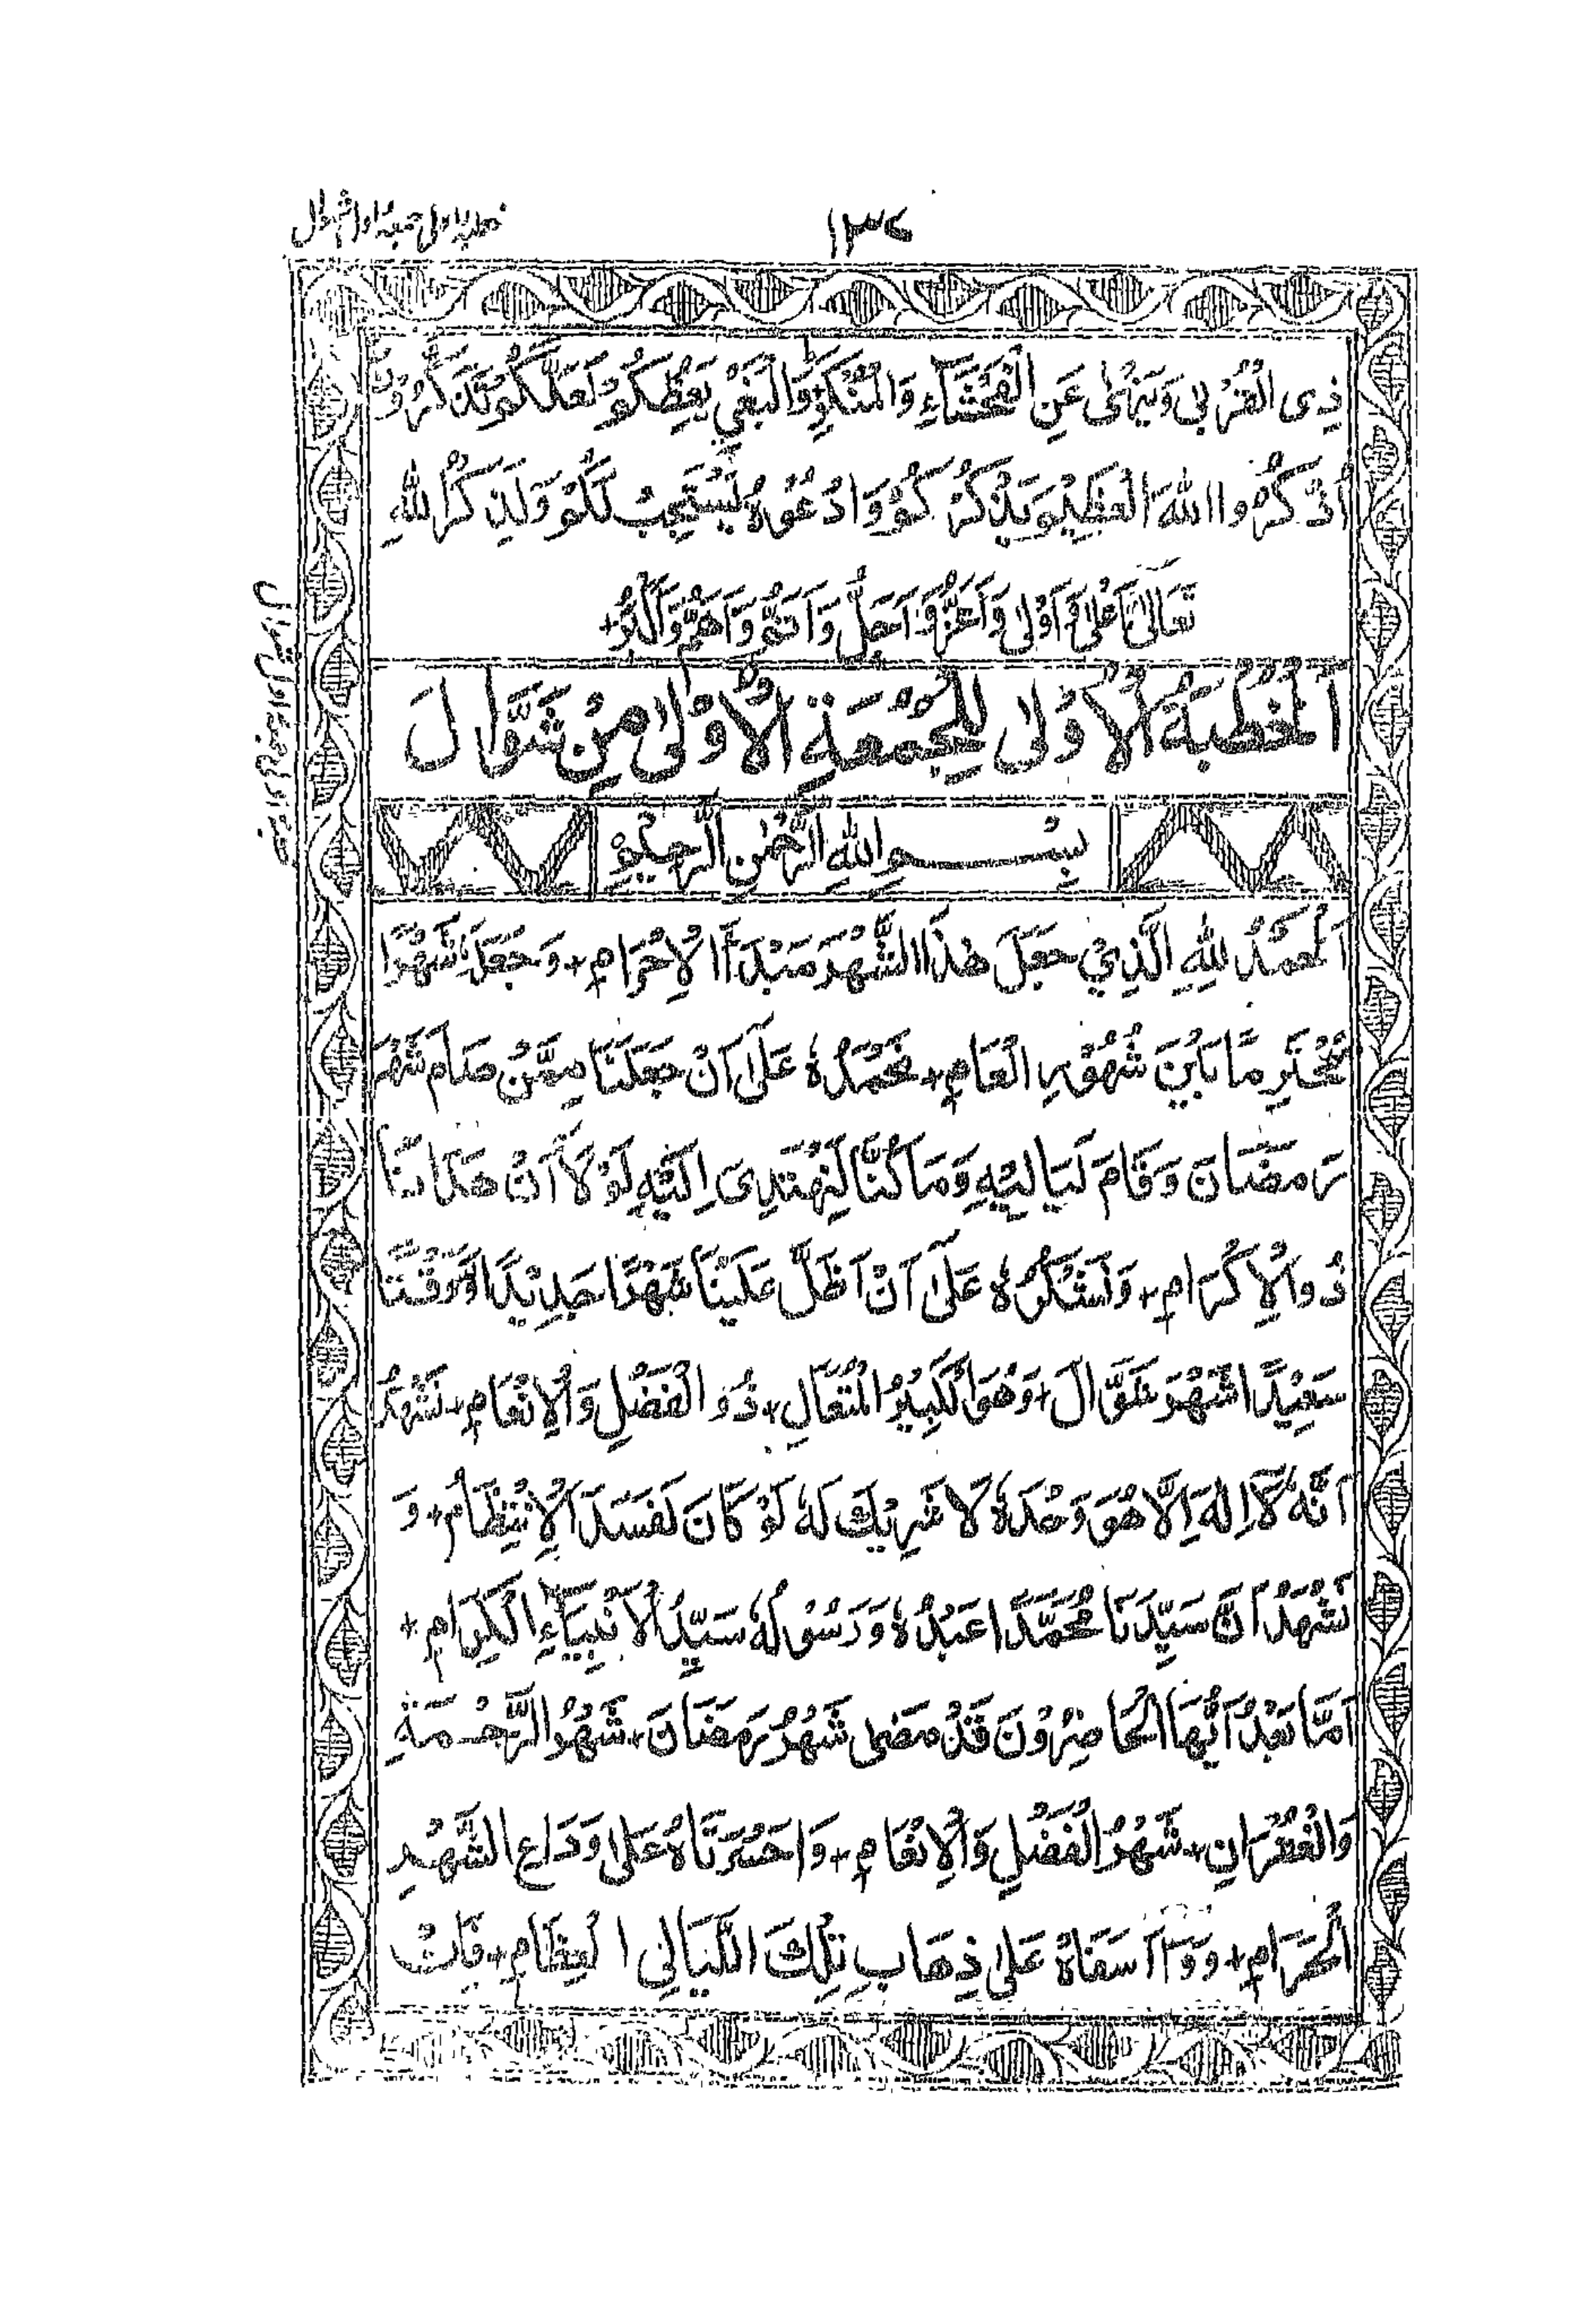 ۱۳۴
خطبہ اولی جمعہ اول شوال
ذِی الْقُرْبٰی وَیَنْهٰی عَنِ الْفَحْشَآءِ وَالْمُنْکَرِ وَالْبَغْیِ یَعِظُکُمْ لَعَلَّکُمْ تَذَکَّرُوْنَ
اُذْکُرُوا اللّٰهَ الْعَظِیْمَ یَذْکُرْکُمْ وَادْعُوْهُ یَسْتَجِبْ لَکُمْ وَلَذِکْرُ اللّٰهِ
تَعَالٰی اَعْلٰی وَاَوْلٰی وَاَعَزُّ وَاَجَلُّ وَاَتَمُّ وَاَهَمُّ وَاَکْبَرُ+
اَلْخُطْبَةُ الْاُوْلٰی لِلْجُمُعَةِ الْاُوْلٰی مِنْ شَوَّالَ
بِسْمِ اللّٰهِ الرَّحْمٰنِ الرَّحِیْمِ
اَلْحَمْدُ لِلّٰهِ الَّذِیْ جَعَلَ هٰذَا الشَّهْرَ مَبْدَأَ الْاِحْرَامِ+ وَجَعَلَهٗ شَهْرًا
مُّحْتَرَمًا بَیْنَ شُهُوْرِ الْعَامِ+ نَحْمَدُهٗ عَلٰٓی اَنْ جَعَلَنَا مِمَّنْ صَامَ شَهْرَ
رَمَضَانَ وَقَامَ لَیَالِیَهٗ وَمَا کُنَّا لِنَهْتَدِیَ اِلَیْهِ لَوْلَآ اَنْ هَدَانَا
ذُو الْاِکْرَامِ+ وَنَشْکُرُهٗ عَلٰٓی اَنْ اَظَلَّ عَلَیْنَا شَهْرًا جَدِیْدًا وَّوَقْتًا
سَعِیْدًا شَهْرَ شَوَّالَ+ وَهُوَ الْکَبِیْرُ الْمُتَعَالِ+ ذُو الْفَضْلِ وَالْاِنْعَامِ+ نَشْهَدُ
اَنَّهٗ لَآ اِلٰهَ اِلَّا هُوَ وَحْدَهٗ لَا شَرِیْكَ لَهٗ لَوْ کَانَ لَفَسَدَ الْاِنْتِظَامُ+ وَ
نَشْهَدُ اَنَّ سَیِّدَنَا مُحَمَّدًا عَبْدُهٗ وَرَسُوْلُهٗ سَیِّدُ الْاَنْبِیَآءِ الْکِرَامِ+
اَمَّا بَعْدُ اَیُّهَا الْحَاضِرُوْنَ قَدْ مَضٰی شَهْرُ رَمَضَانَ+ شَهْرُ الرَّحْمَةِ
وَالْغُفْرَانِ+ شَهْرُ الْفَضْلِ وَالْاِنْعَامِ+ وَاحَسْرَتَاهُ عَلٰی وَدَاعِ الشَّهْرِ
الْحَرَامِ+ وَوَآ اَسَفَاهُ عَلٰی ذِهَابِ تِلْكَ اللَّیَالِی الْعِظَامِ+ فَاتَتْ